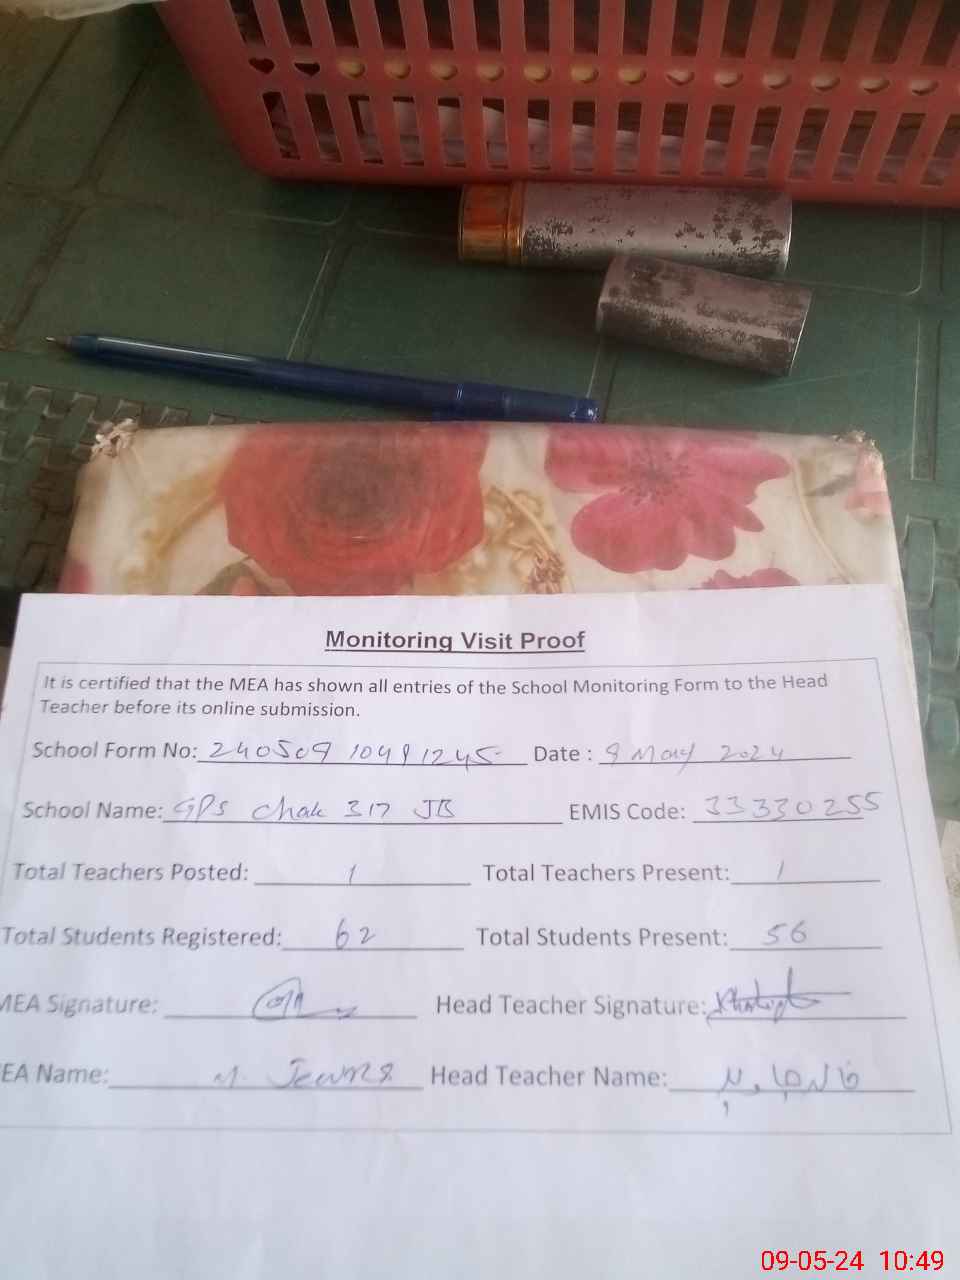 Monitoring Visit Proof
It is certified that the MEA has shown all entries of the School Monitoring Form to the Head
Teacher before its online submission.
School Form No: 240509 10491245 Date : 9 May 2024
School Name: GPS Chak 317 JB EMIS Code: 33330255
Total Teachers Posted: 1 Total Teachers Present: 1
Total Students Registered: 62 Total Students Present: 56
MEA Signature: Head Teacher Signature:
EA Name: M. Head Teacher Name:
09-05-24 10:49